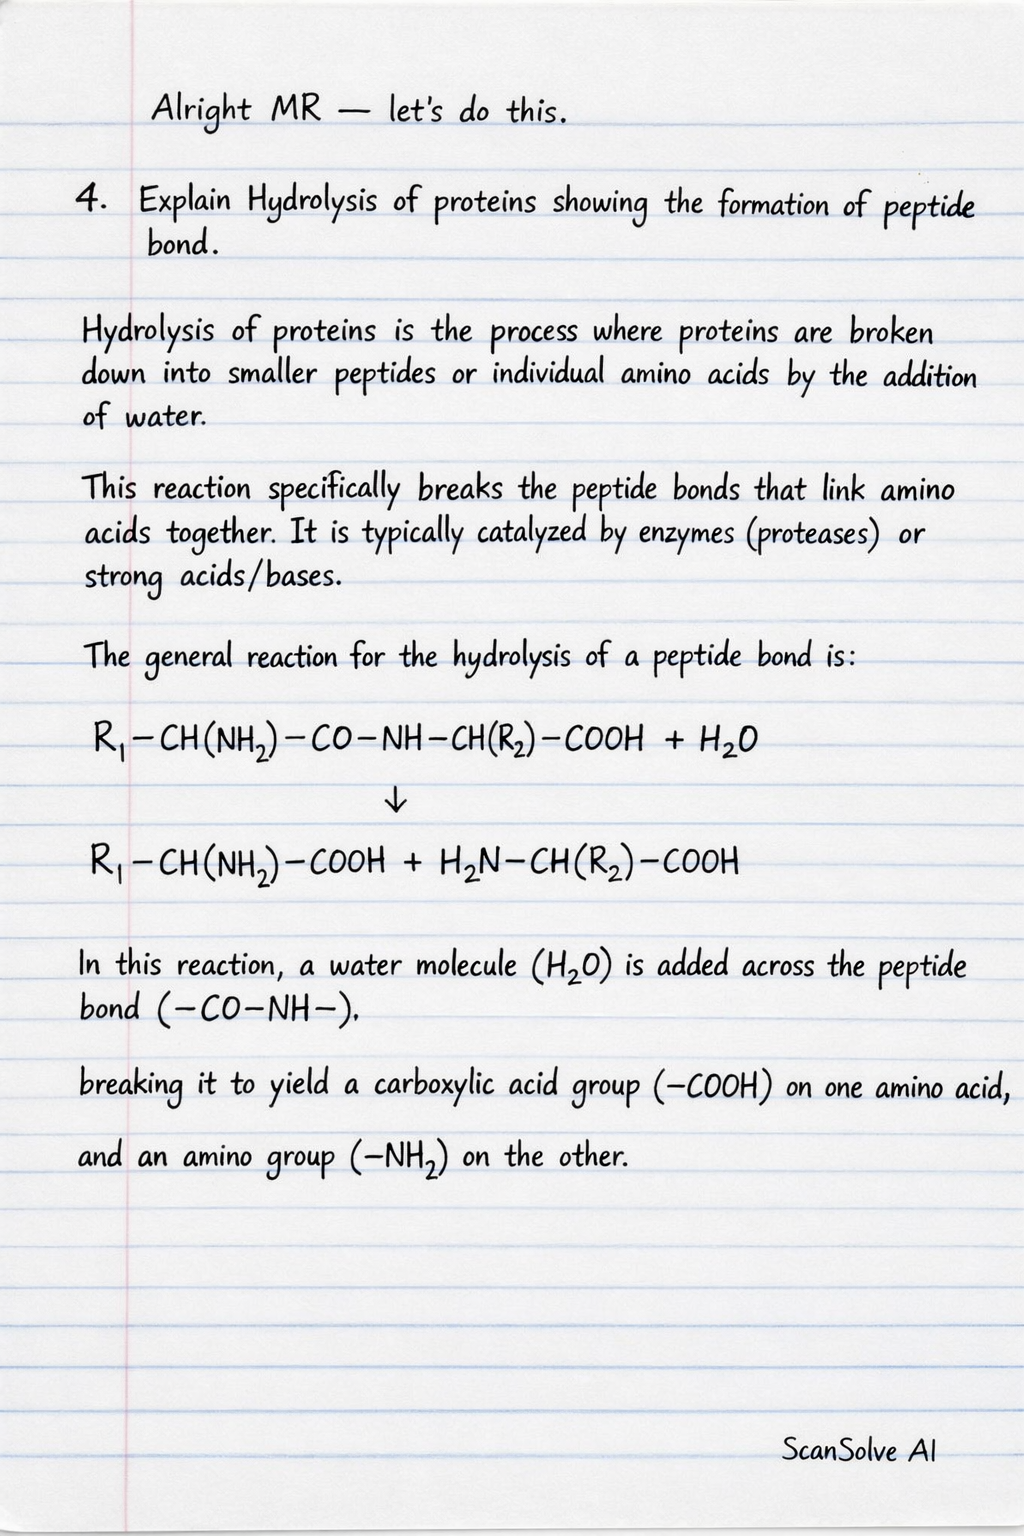 Alright MR — let's do this.
4. Explain Hydrolysis of proteins showing the formation of peptide
bond.
Hydrolysis of proteins is the process where proteins are broken
down into smaller peptides or individual amino acids by the addition
of water.
This reaction specifically breaks the peptide bonds that link amino
acids together. It is typically catalyzed by enzymes (proteases) or
strong acids/bases.
The general reaction for the hydrolysis of a peptide bond is:
R₁–CH(NH₂)–CO–NH–CH(R₂)–COOH + H₂O
↓
R₁–CH(NH₂)–COOH + H₂N–CH(R₂)–COOH
In this reaction, a water molecule (H₂O) is added across the peptide
bond (–CO–NH–).
breaking it to yield a carboxylic acid group (–COOH) on one amino acid,
and an amino group (–NH₂) on the other.
ScanSolve AI